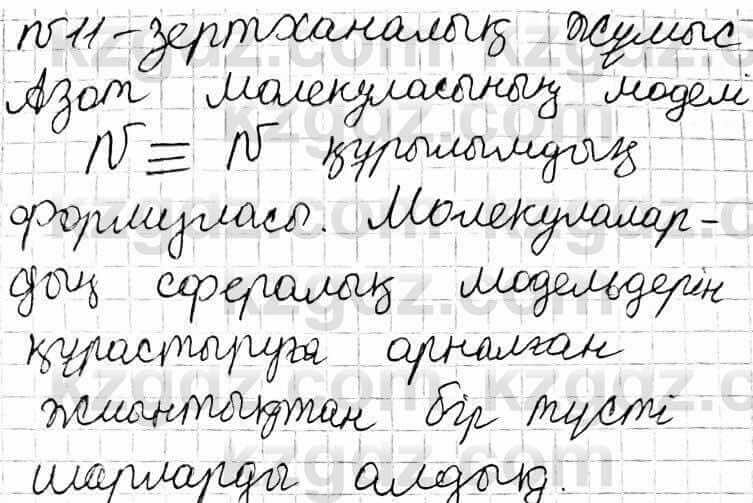 №11-зертханалық жұмыс
Азот молекуласының моделі
N ≡ N құрылымдық
формуласы. Молекулалар-
дың сфералық модельдерін
құрастыруға арналған
жиынтықтан бір түсті
шарларды алдық.